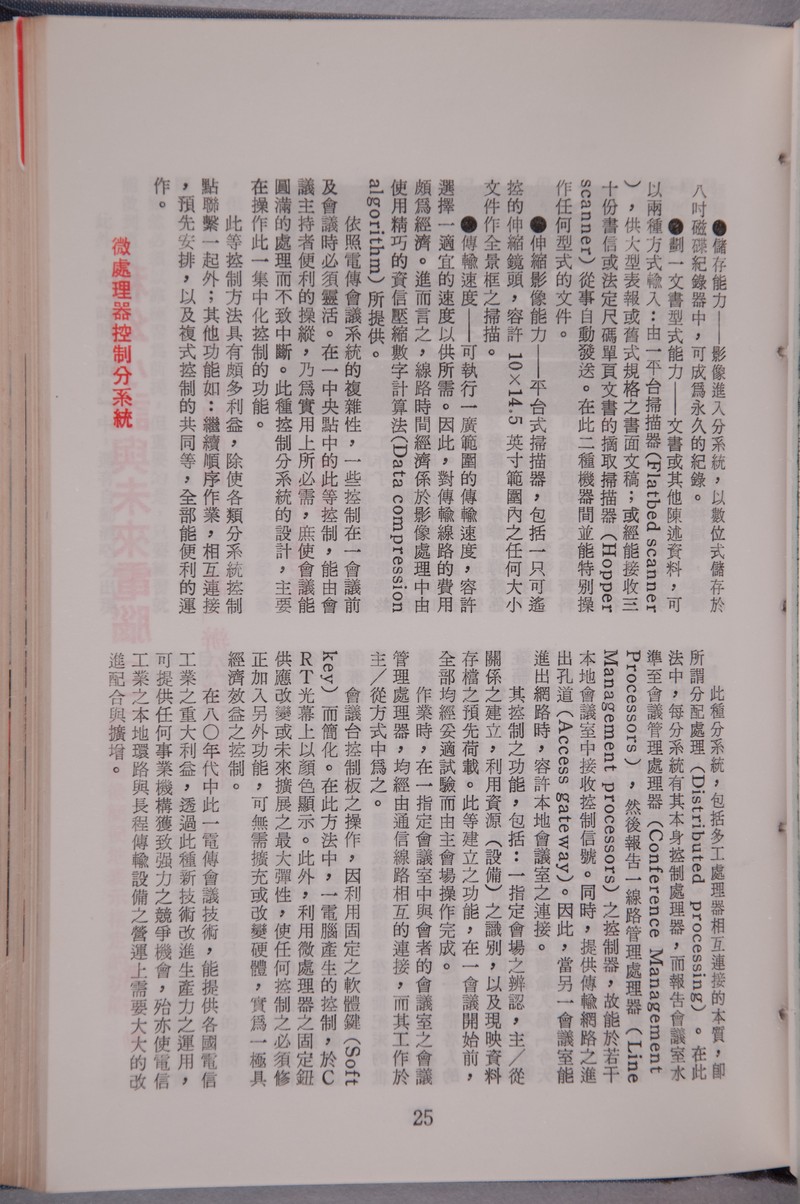 ●儲存能力——影像進入分系統，以數位式儲存於
八吋磁碟紀錄器中，可成爲永久的紀錄。
●劃一文書型式能力——文書或其他陳述資料，可
以兩種方式輸入：由一平台掃描器(Flatbed scanner
），供大型表報或舊式規格之書面文稿；或經能接收三
十份書信或法定尺碼單頁文書的摘取掃描器（Hopper
scanner）從事自動發送。在此二種機器間並能特別操
作任何型式的文件。
●伸縮影像能力——平台式掃描器，包括一只可遙
控的伸縮鏡頭，容許 10×14.5 英寸範圍內之任何大小
文件作全景框之掃描。
●傳輸速度——可執行一廣範圍的傳輸速度，容許
選擇一適宜的速度以供所需。因此，對傳輸線路的費用
頗爲經濟。進而言之，線路時間經濟係於影像處理中由
使用精巧的資信壓縮數字計算法(Data compression
algorithm）所提供。
依照電傳會議系統的複雜性，一些控制在一會議前
及會議時必須靈活。在一中央點中的此等控制，能由會
議主持者便利的操縱，乃爲實用上所必需，庶使會議能
圓滿的處理而不致中斷。此種控制分系統的設計，主要
在操作此一集中化控制的功能。
此等控制方法具有頗多利益，除使各類分系統控制
點聯繫一起外；其他功能如：繼續順序作業，相互連接
，預先安排，以及複式控制的共同等，全部能便利的運
作。
微處理器控制分系統
此種分系統，包括多工處理器相互連接的本質，卽
所謂分配處理（Distributed processing）。在此
法中，每分系統有其本身控制處理器，而報告會議室水
準至會議管理處理器（Conference Management
Processors），然後報告一線路管理處理器（Line
Management processors）之控制器，故能於若干
本地會議室中接收控制信號。同時，提供傳輸網路之進
出孔道（Access gateway）。因此，當另一會議室能
進出網路時，容許本地會議室之連接。
其控制之功能，包括：一指定會場之辨認，主／從
關係之建立，利用資源（設備）之識別，以及現映資料
存檔之預先荷載。此等建立之功能，在一會議開始前，
全部均經妥適試驗而由主會場操作完成。
作業時，在一指定會議室中與會者的會議室之會議
管理處理器，均經由通信線路相互的連接，而其工作於
主／從方式中爲之。
會議台控制板之操作，因利用固定之軟體鍵（Soft
key）而簡化。在此方法中，一電腦產生的控制，於C
RT光幕上以顏色顯示。此外，利用微處理器之固定鈕
供應改變或未來擴展之最大彈性，使任何控制之必須修
正加入另外功能，可無需擴充或改變硬體，實爲一極具
經濟效益之控制。
在八〇年代中此一電傳會議技術，能提供各國電信
工業之重大利益，透過此種新技術改進生產力之運用，
可提供任何事業機構獲致强力之競爭機會，殆亦使電信
工業之本地環路與長程傳輸設備之營運上需要大大的改
進配合與擴增。
25